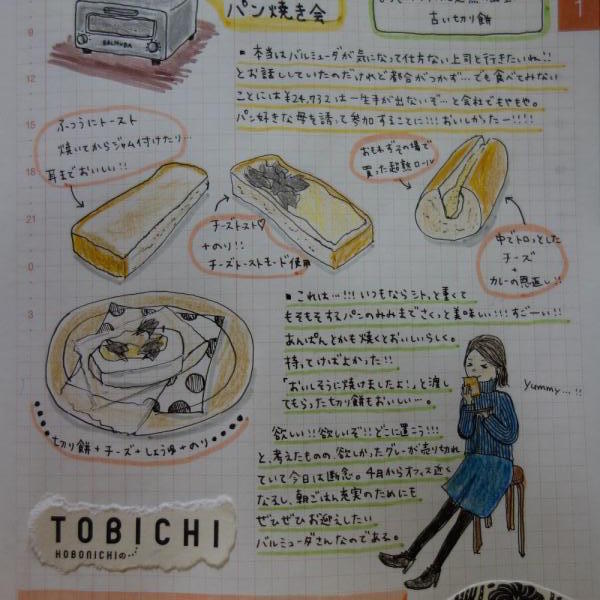 BALMUDA
パン焼き会
古い切り餅
1
■ 本当はバルミューダが気になって仕方ない上司と行きたいね!!
とお話ししていたのだけれど都合がつかず…でも食べてみない
ことには¥24,732は一生手が出ないぞ…と会社でもやもや。
パン好きな母を誘って参加することに!!!おいしかたー!!!!
12
15
18
21
0
3
ふつうにトースト
焼いてからジャム付けたり…
耳までおいしい!!
チーズトースト♡
+のり!!
チーズトーストモード使用
おもわずその場で
買った超熟ロール
中でトロッとした
チーズ
+
カレーの恩返し!!
■ これは…!!! いつもならシトッと重くて
もそもそするパンのみみまでさくっと美味しい!!! すごーい!!
あんぱんとかも焼くとおいしいらしく。
持ってけばよかった!!
「おいしそうに焼けましたよ!」と渡し
てもらった切り餅もおいしい…。
欲しい!! 欲しいぞ!! どこに置こう!!!
と、考えたものの、欲しかったグレーが売り切れ
ていて今日は断念。4月からオフィス近く
なるし、朝ごはん充実のためにも
ぜひぜひお迎えしたい
バルミューダさんなのである。
yummy…!!
切り餅+チーズ+しょうゆ+のり
TOBICHI
HOBONICHIの…